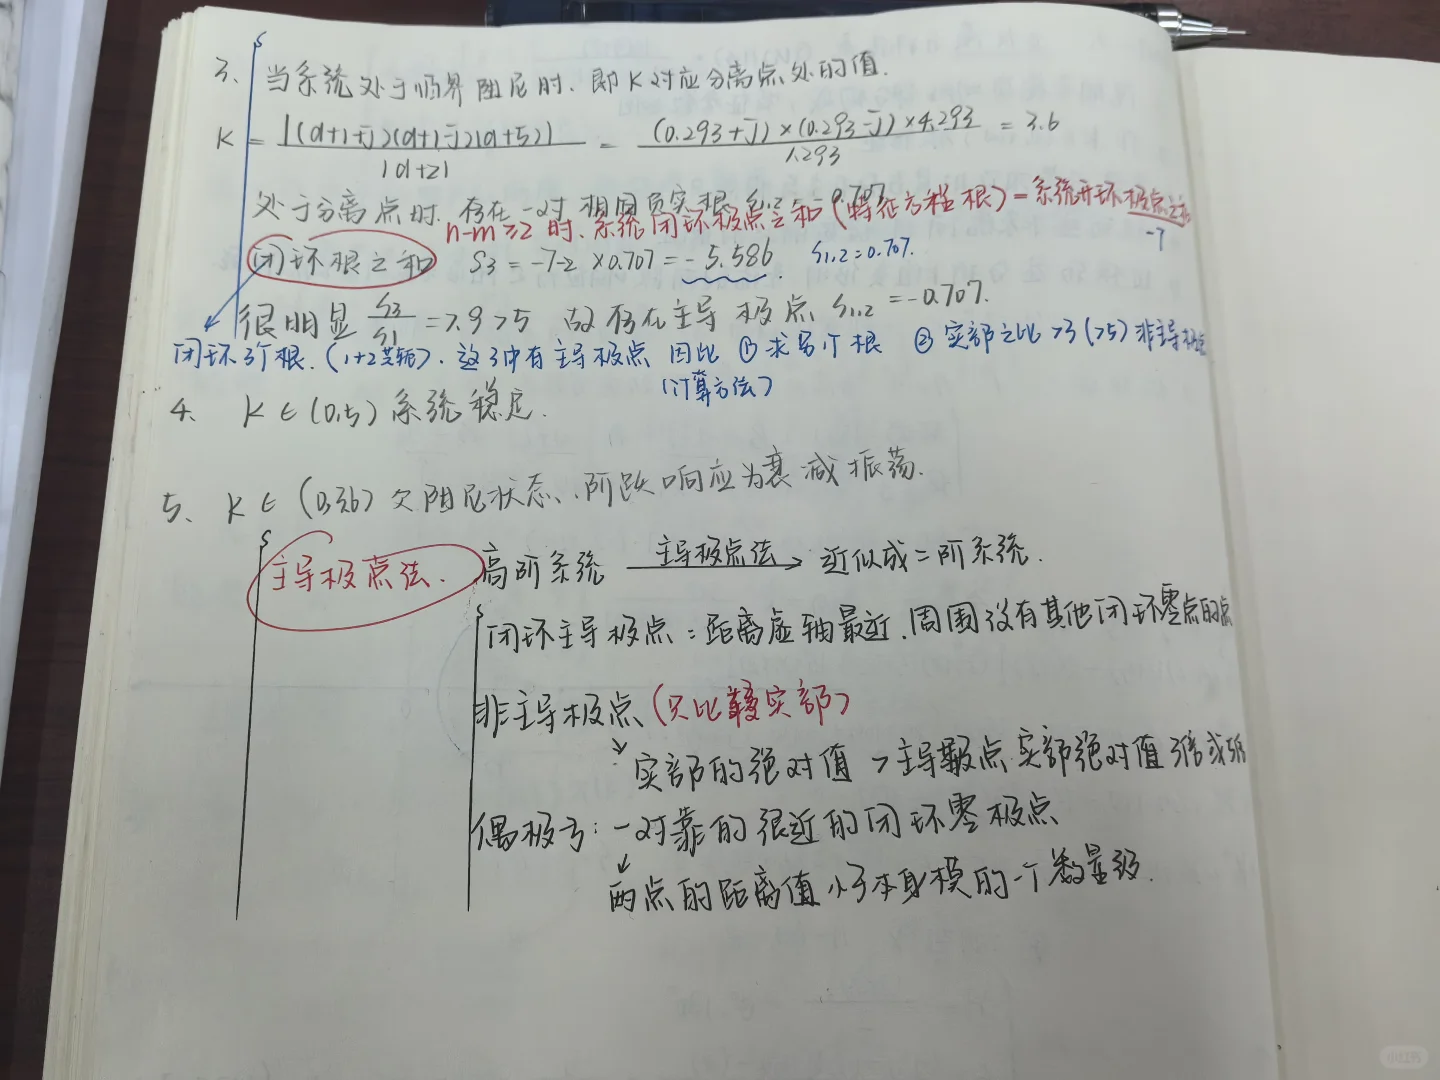 3、当系统处于临界阻尼时、即K对应分离点处的值.
K = |(d+1+j)(d+1-j)(d+5)| / |d+2| = (0.293+j)×(0.293-j)×4.293 / 1.293 = 3.6
处于分离点时.存在一对相同负实根 S1,2 = -0.707
n-m≥2时、系统闭环极点之和(特征方程根)=系统开环极点之和
-7
闭环根之和 S3 = -7-2×0.707 = -5.586 S1,2=0.707.
很明显 S3/S1 = 7.9>5 故存在主导极点 S1,2 = -0.707.
闭环3个根.(1+2共轭).这3中有主导极点 因此 ①求另个根 ②实部之比>3(>5)非主导极点
(计算方法)
4、 K∈(0,5)系统稳定.
5、 K∈(0,36)欠阻尼状态、阶跃响应为衰减振荡.
主导极点法. 高阶系统 主导极点法→ 近似成二阶系统.
闭环主导极点:距离虚轴最近.周围没有其他闭环零点的点
非主导极点(只比较实部)
实部的绝对值>主导极点实部绝对值3倍或5倍
偶极子:一对靠的很近的闭环零极点
两点的距离值小于本身模的一个数量级.
小红书